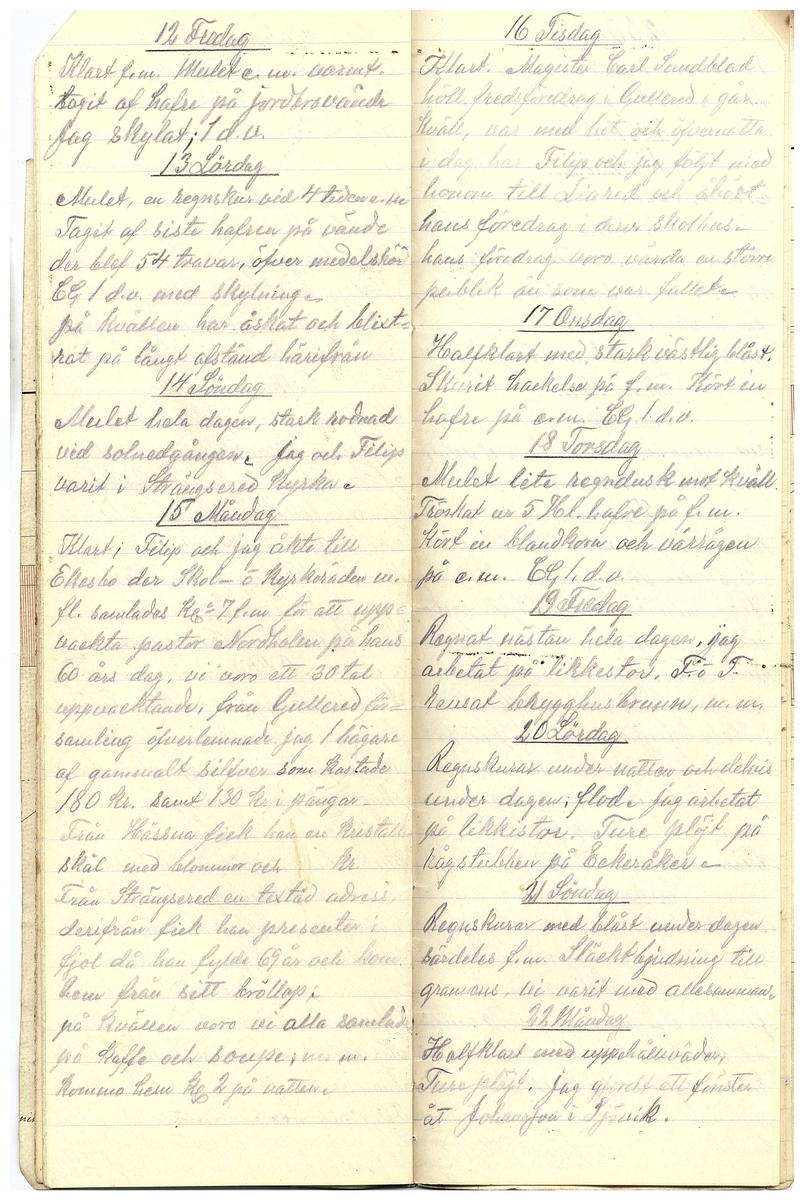 12 Fredag
Klart f.m. Mulet e.m. varmt.
tagit af hafre på jordbrovände
jag skylat; 1 d.v.
13 Lördag
Mulet, en regnskur vid 4 tiden e.m
Taget af siste hafren på vände
der blef 54 travar, öfver medelskörd
CG 1 d.v. med skylning.
på kvällen har åskat och blixt=
rat på långt afstånd härifrån
14 Söndag
Mulet hela dagen, stark rodnad
vid solnedgången. jag och Filip
varit i Strängsered Kyrka.
15 Måndag
Klart; Filip och jag åkte till
Ekesbo der Skol- o Kyrkoråden m.
fl. samlades Kl 7 f.m för att upp=
vackta pastor Nordholm på hans
60 års dag, vi voro ett 30 tal
uppvacktande, från Gullered för=
samling öfverlemnade jag 1 bägare
af gammalt silfver som kostade
180 Kr. samt 130 Kr i pängar.
Från Hässna fick han en kristall=
skål med blommor och Kr
Från Strängsered en textad adress,
derifrån fick han presenter i
fjol då han fylde 69 år och kom
hem från sitt bröllop;
på kvällen voro vi alla samlade
på kaffe och soupe, m.m.
kommo hem Kl 2 på natten.
16 Tisdag
Klart. Magister Carl Sundblad
höll fredsföredrag i Gullered i går
Kväll, var med hit och öfvernatta
i dag har Filip och jag följt med
honom till Liared och åhört
hans föredrag i derv. skolhus.
hans föredrag voro värda en större
publik än som var fallet.
17 Onsdag
Halfklart med stark västlig blåst.
Skurit hackelse på f.m. Kört in
hafre på e.m. CG 1 d.v.
18 Torsdag
Mulet lite regndusk mot kväll.
Tröskat ur 5 Hl. hafre på f.m.
Kört in blandkorn och vårrågen
på e.m. CG 1. d.v.
19 Fredag
Regnat nästan hela dagen, jag
arbetat på likkestor, F. o T.
rensat brygghusbrunn, m.m,
20 Lördag
Regnskurar under natten och delvis
under dagen; flod. jag arbetat
på likkistor. Ture plöjt på
rågstubben på Eekeråker.
21 Söndag
Regnskurar med blåst under dagen
särdeles f.m. Släcktbjudning till
gramons, vi varit med allesamman.
22 Måndag
Halfklart med uppehållsväder,
Ture plöjt. jag gjordt ett fönster
åt Johansson i